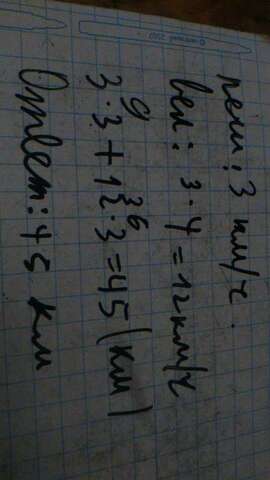 пеш: 3 км/ч.
вел: 3·4=12км/ч
9 36
3·3+12·3=45(км)
Ответ: 45 км